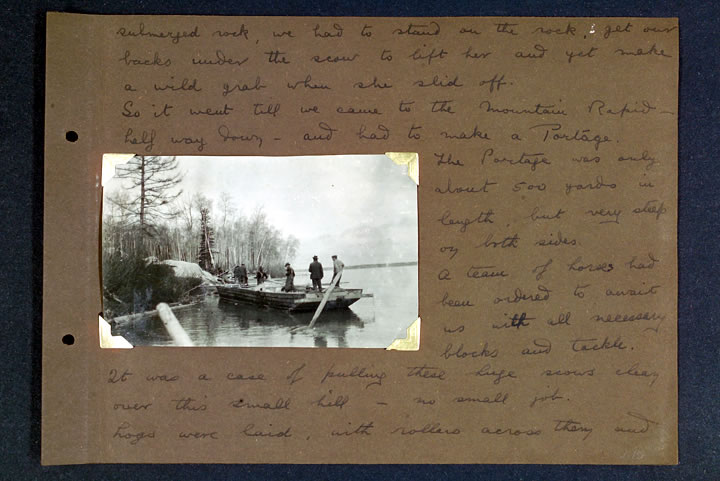 submerged rock, we had to stand on the rock, get our
backs under the scow to lift her and yet make
a wild grab when she slid off.
So it went till we came to the Mountain Rapid -
half way down - and had to make a Portage.
The Portage was only
about 500 yards in
length, but very steep
on both sides.
A team of horses had
been ordered to await
us with all necessary
blocks and tackle.
It was a case of pulling these huge scows clean
over this small hill - no small job.
Logs were laid, with rollers across them and